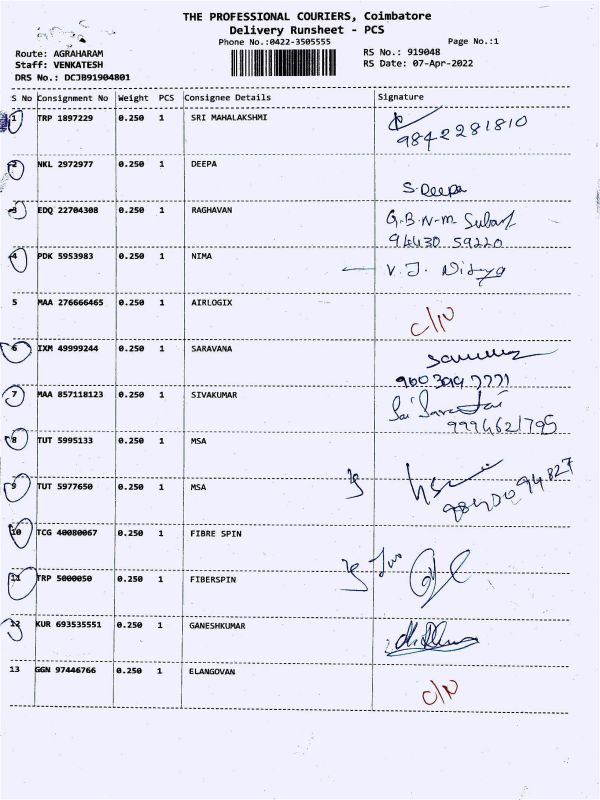 THE PROFESSIONAL COURIERS, Coimbatore
Delivery Runsheet - PCS
Phone No.:0422-3505555
Page No.:1
Route: AGRAHARAM
Staff: VENKATESH
DRS No.: DCJB91904801
RS No.: 919048
RS Date: 07-Apr-2022
S No Consignment No Weight PCS Consignee Details Signature
1 TRP 1897229 0.250 1 SRI MAHALAKSHMI
9842281810
2 NKL 2972977 0.250 1 DEEPA
S. Deepa
3 EDQ 22704308 0.250 1 RAGHAVAN G.B.N.M.
94430 59220
4 PDK 5953983 0.250 1 NIMA V. J.
5 MAA 276666465 0.250 1 AIRLOGIX
C/N
6 IXM 49999244 0.250 1 SARAVANA
7 MAA 857118123 0.250 1 SIVAKUMAR Sai
9994621795
8 TUT 5995133 0.250 1 MSA
9 TUT 5977650 0.250 1 MSA
10 TCG 40080067 0.250 1 FIBRE SPIN
11 TRP 5000050 0.250 1 FIBERSPIN
12 KUR 693535551 0.250 1 GANESHKUMAR
13 GGN 97446766 0.250 1 ELANGOVAN
C/N